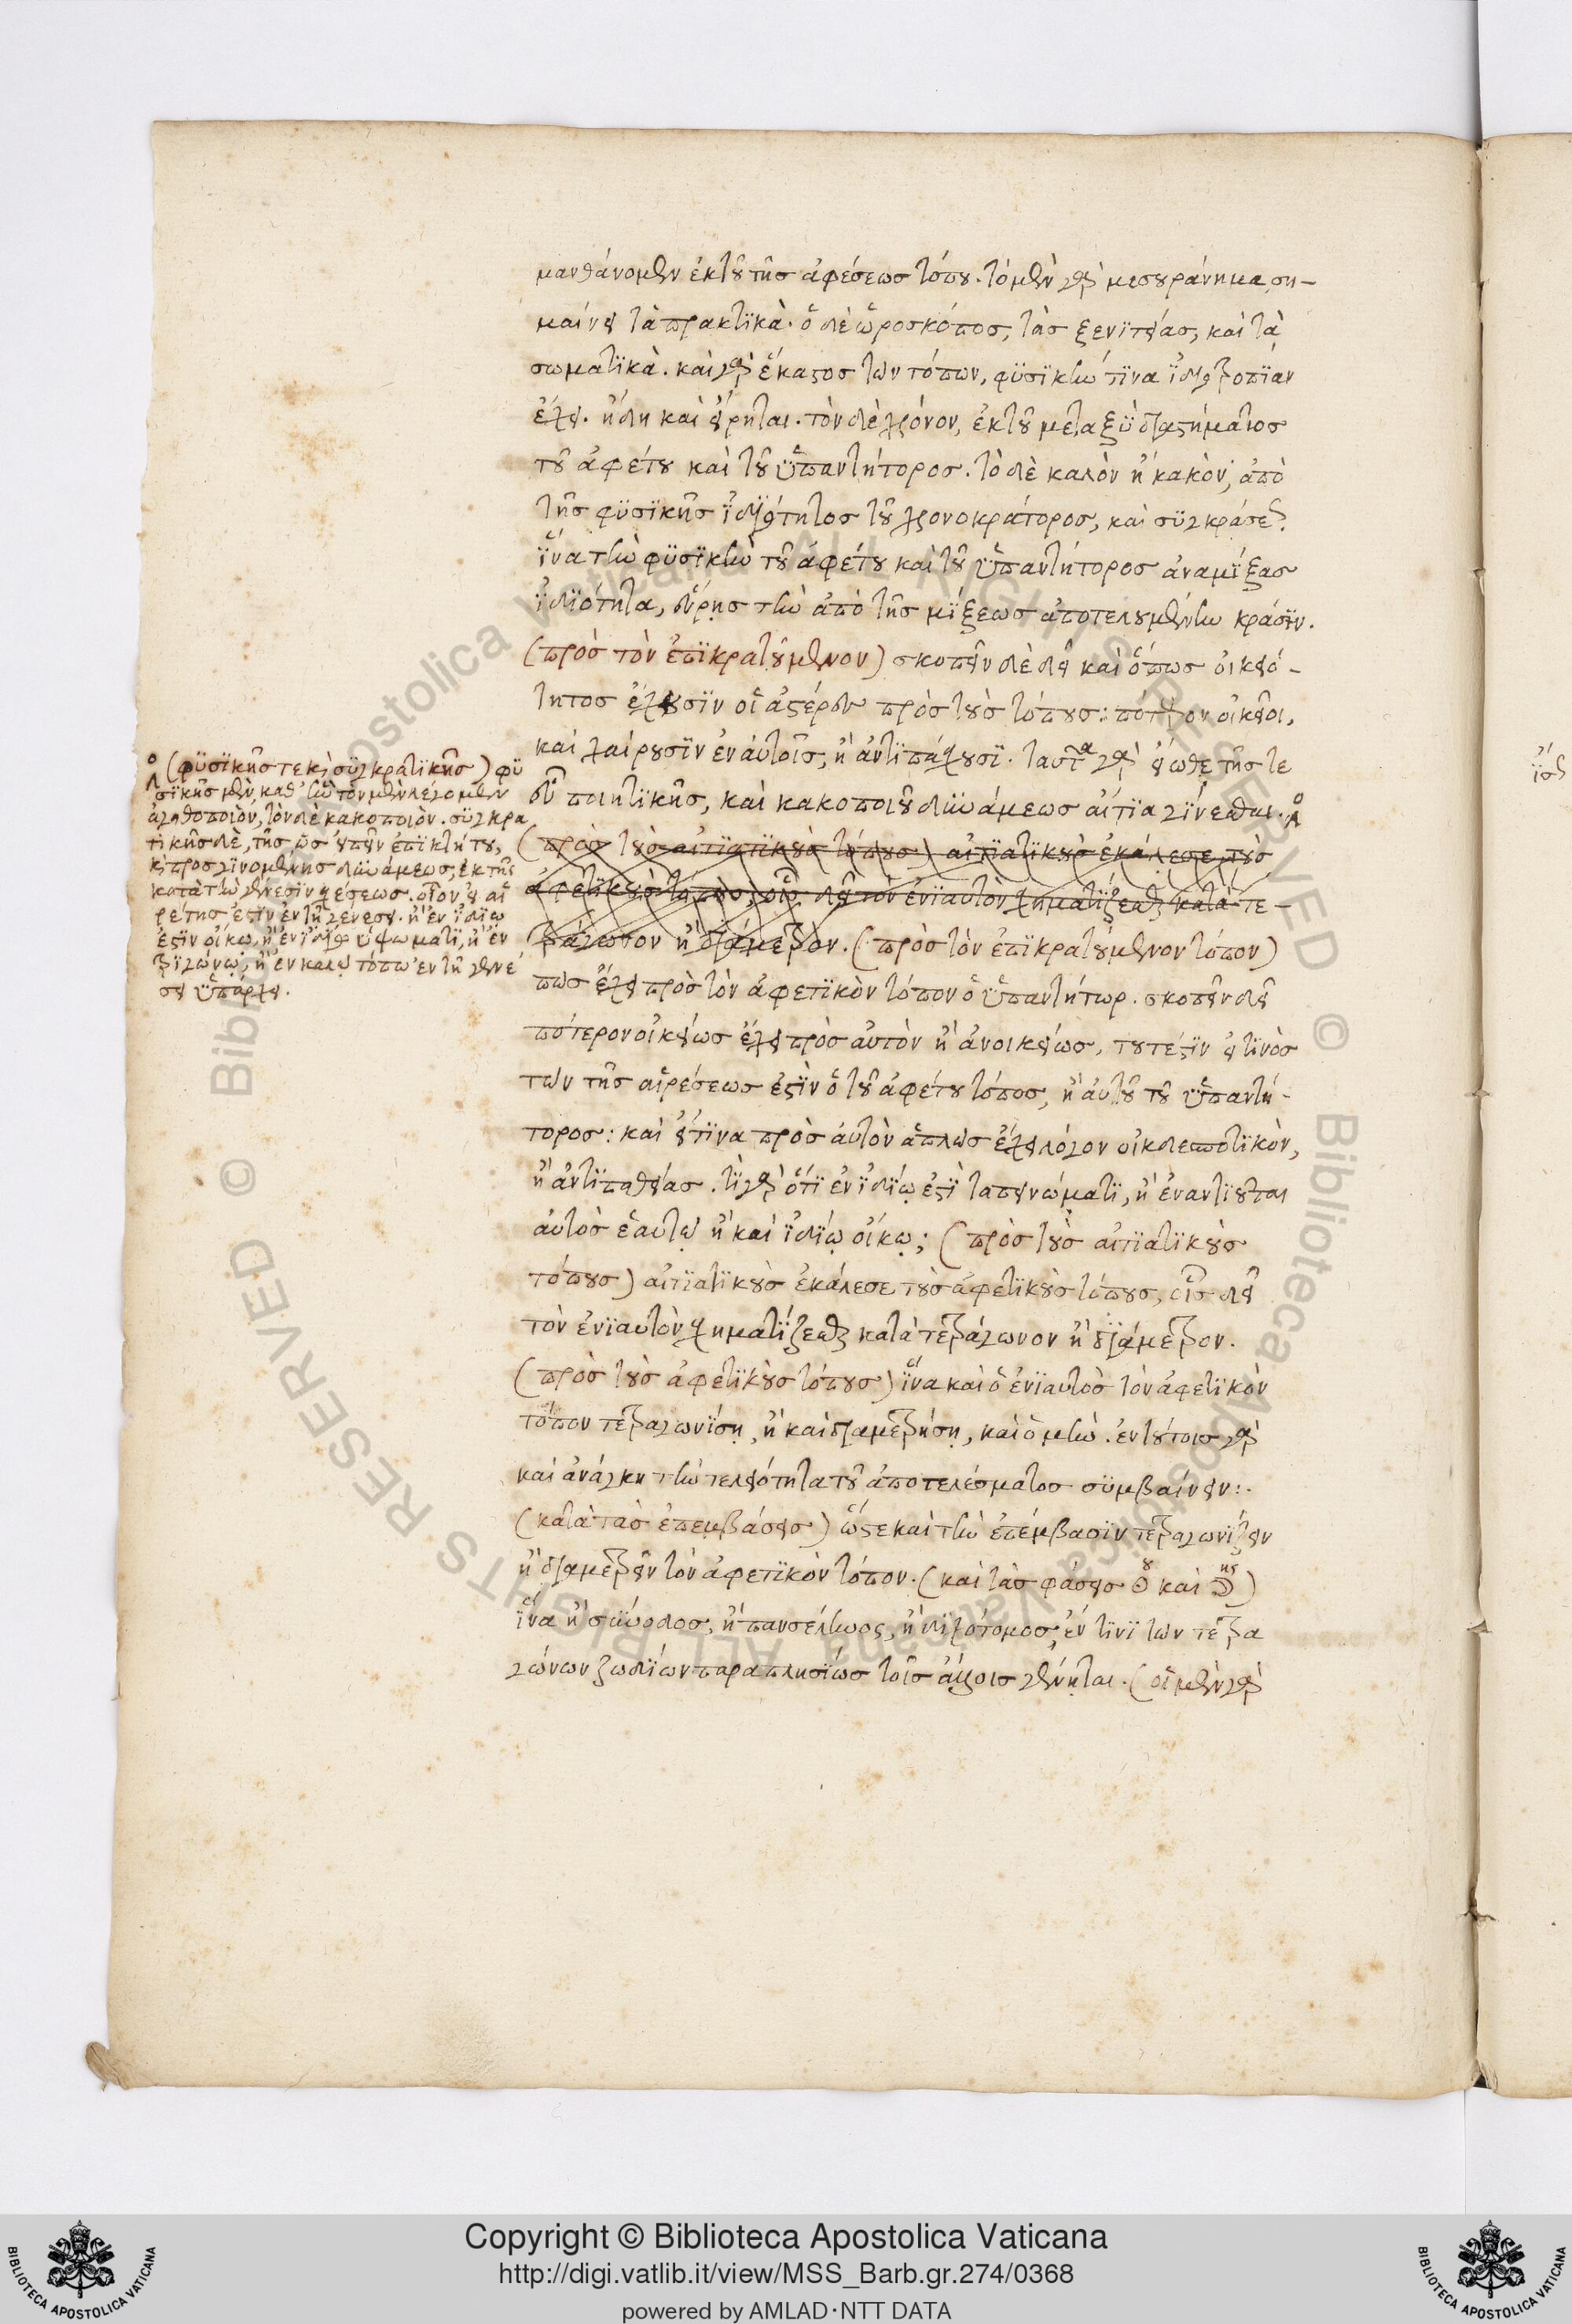 μανθάνομεν ἐκ τοῦ τῆς ἀφέσεως τόπου. τὸ μὲν γὰρ μεσουράνημα ση-
μαίνει τὰ πρακτϊκὰ. ὁ δὲ ὡροσκόπος, τὰς ξενϊτείας, καὶ τὰ
σωματϊκὰ. καὶ γὰρ ἕκαστος τῶν τόπων, φϋσϊκὴν τϊνα ἰδιοτροπϊαν
ἔχει. ἤδη καὶ εἴρηται. τὸν δὲ χρόνον, ἐκ τοῦ μεταξὺ διαστήματος
τοῦ ἀφέτου καὶ τοῦ ὑπαντήτορος. τὸ δὲ καλὸν ἢ κακὸν, ἀπὸ
τῆς φϋσϊκῆς ἰδιότητος τοῦ χρονοκράτορος, καὶ συγκράσεως.
ἵνα τὴν φϋσϊκὴν τοῦ ἀφέτου καὶ τοῦ ὑπαντήτορος ἀναμίξας
ἰδϊότητα, εὕρῃς τὴν ἀπὸ τῆς μίξεως ἀποτελουμένην κράσϊν.
(πρὸς τὸν ἐπϊκρατούμενον) σκοπεῖν δὲ δεῖ καὶ ὅπως οἰκειό-
τητος ἔχουσϊν οἱ ἀστέρες πρὸς τοὺς τόπους: πότερον οἰκεῖοι,
καὶ χαίρουσϊν ἐν αὐτοῖς, ἢ ἀντϊπάσχουσϊ. ταῦτα γὰρ εἴωθε τῆς τε
εὖ ποιητϊκῆς, καὶ κακοποιοῦ δυνάμεως αἴτϊα γίνεσθαι.
(πρὸς τοὺς αἰτϊατϊκοὺς τόπους) αἰτϊατϊκοὺς ἐκάλεσε τοὺς
ἀφετϊκοὺς τόπους, οἷς δεῖ τὸν ἐνϊαυτὸν σχηματίζεσθαι κατὰ τε-
τράγωνον ἢ διάμετρον. (πρὸς τὸν ἐπϊκρατούμενον τόπον)
πῶς ἔχει πρὸς τὸν ἀφετϊκὸν τόπον ὁ ὑπαντήτωρ. σκοπεῖν δεῖ
πότερον οἰκείως ἔχει πρὸς αὐτὸν ἢ ἀνοικείως, τουτέστϊν εἰ τϊνὸς
τῶν τῆς αἱρέσεως ἐστϊν ὁ τοῦ ἀφέτου τόπος, ἢ αὐτοῦ τοῦ ὑπαντή-
τορος: καὶ εἴ τϊνα πρὸς αὐτὸν ἁπλῶς ἔχει λόγον οἰκοδεσποτϊκὸν,
ἢ ἀντϊπαθείας. τί γὰρ ὅτϊ ἐν ἰδίῳ ἐστϊ ταπεινώματϊ, ἢ ἐναντϊοῦται
αὐτὸς ἑαυτῷ ἢ καὶ ἰδίῳ οἴκῳ; (πρὸς τοὺς αἰτϊατϊκοὺς
τόπους) αἰτϊατϊκοὺς ἐκάλεσε τοὺς ἀφετϊκοὺς τόπους, οἷς δεῖ
τὸν ἐνϊαυτὸν σχηματίζεσθαι κατὰ τετράγωνον ἢ διάμετρον.
(πρὸς τοὺς ἀφετϊκοὺς τόπους) ἵνα καὶ ὁ ἐνϊαυτὸς τὸν ἀφετϊκὸν
τόπον τετραγωνίσῃ, ἢ καὶ διαμετρήσῃ, καὶ ὁ μήν. ἐν τούτοις γὰρ
καὶ ἀνάγκη τὴν τελειότητα τοῦ ἀποτελέσματος συμβαίνειν:.
(κατὰ τὰς ἐπεμβάσεις) ὥστε καὶ τὴν ἐπέμβασϊν τετραγωνίζειν
ἢ διαμετρεῖν τὸν ἀφετϊκὸν τόπον. (καὶ τὰς φάσεις ☉ου καὶ ☽ης)
ἵνα ἢ σύνοδος, ἢ πανσέληνος, ἢ διχότομος ἐν τϊνϊ τῶν τετρα
γώνων ζωδϊων παραπλησϊως τοῖς ἄλλοις γένηται. (οἱ μὲν γὰρ
(φϋσϊκῆς τε καὶ συγκρατϊκῆς) φϋ
σϊκῆς μὲν, καθ' ἣν τὸν μὲν λέγομεν
ἀγαθοποιὸν, τὸν δὲ κακοποιόν. συγκρα
τϊκῆς δὲ, τῆς ὡς εἰπεῖν ἐπϊκτήτου,
καὶ προσγϊνομένης δυνάμεως, ἐκ τῆς
κατὰ τὴν γένεσϊν σχέσεως. οἷον εἰ αἱ
ρέτης ἐστϊν ἐν τῇ γενέσει. ἢ ἐν ἰδίῳ
ἐστϊν οἴκῳ, ἢ ἐν ἰδίῳ ὑψώματϊ, ἢ ἐν
τρϊγώνῳ, ἢ ἐν καλῷ τόπῳ ἐν τῇ γενέ
σει ὑπάρχει.
Copyright © Biblioteca Apostolica Vaticana
http://digi.vatlib.it/view/MSS_Barb.gr.274/0368
powered by AMLAD·NTT DATA